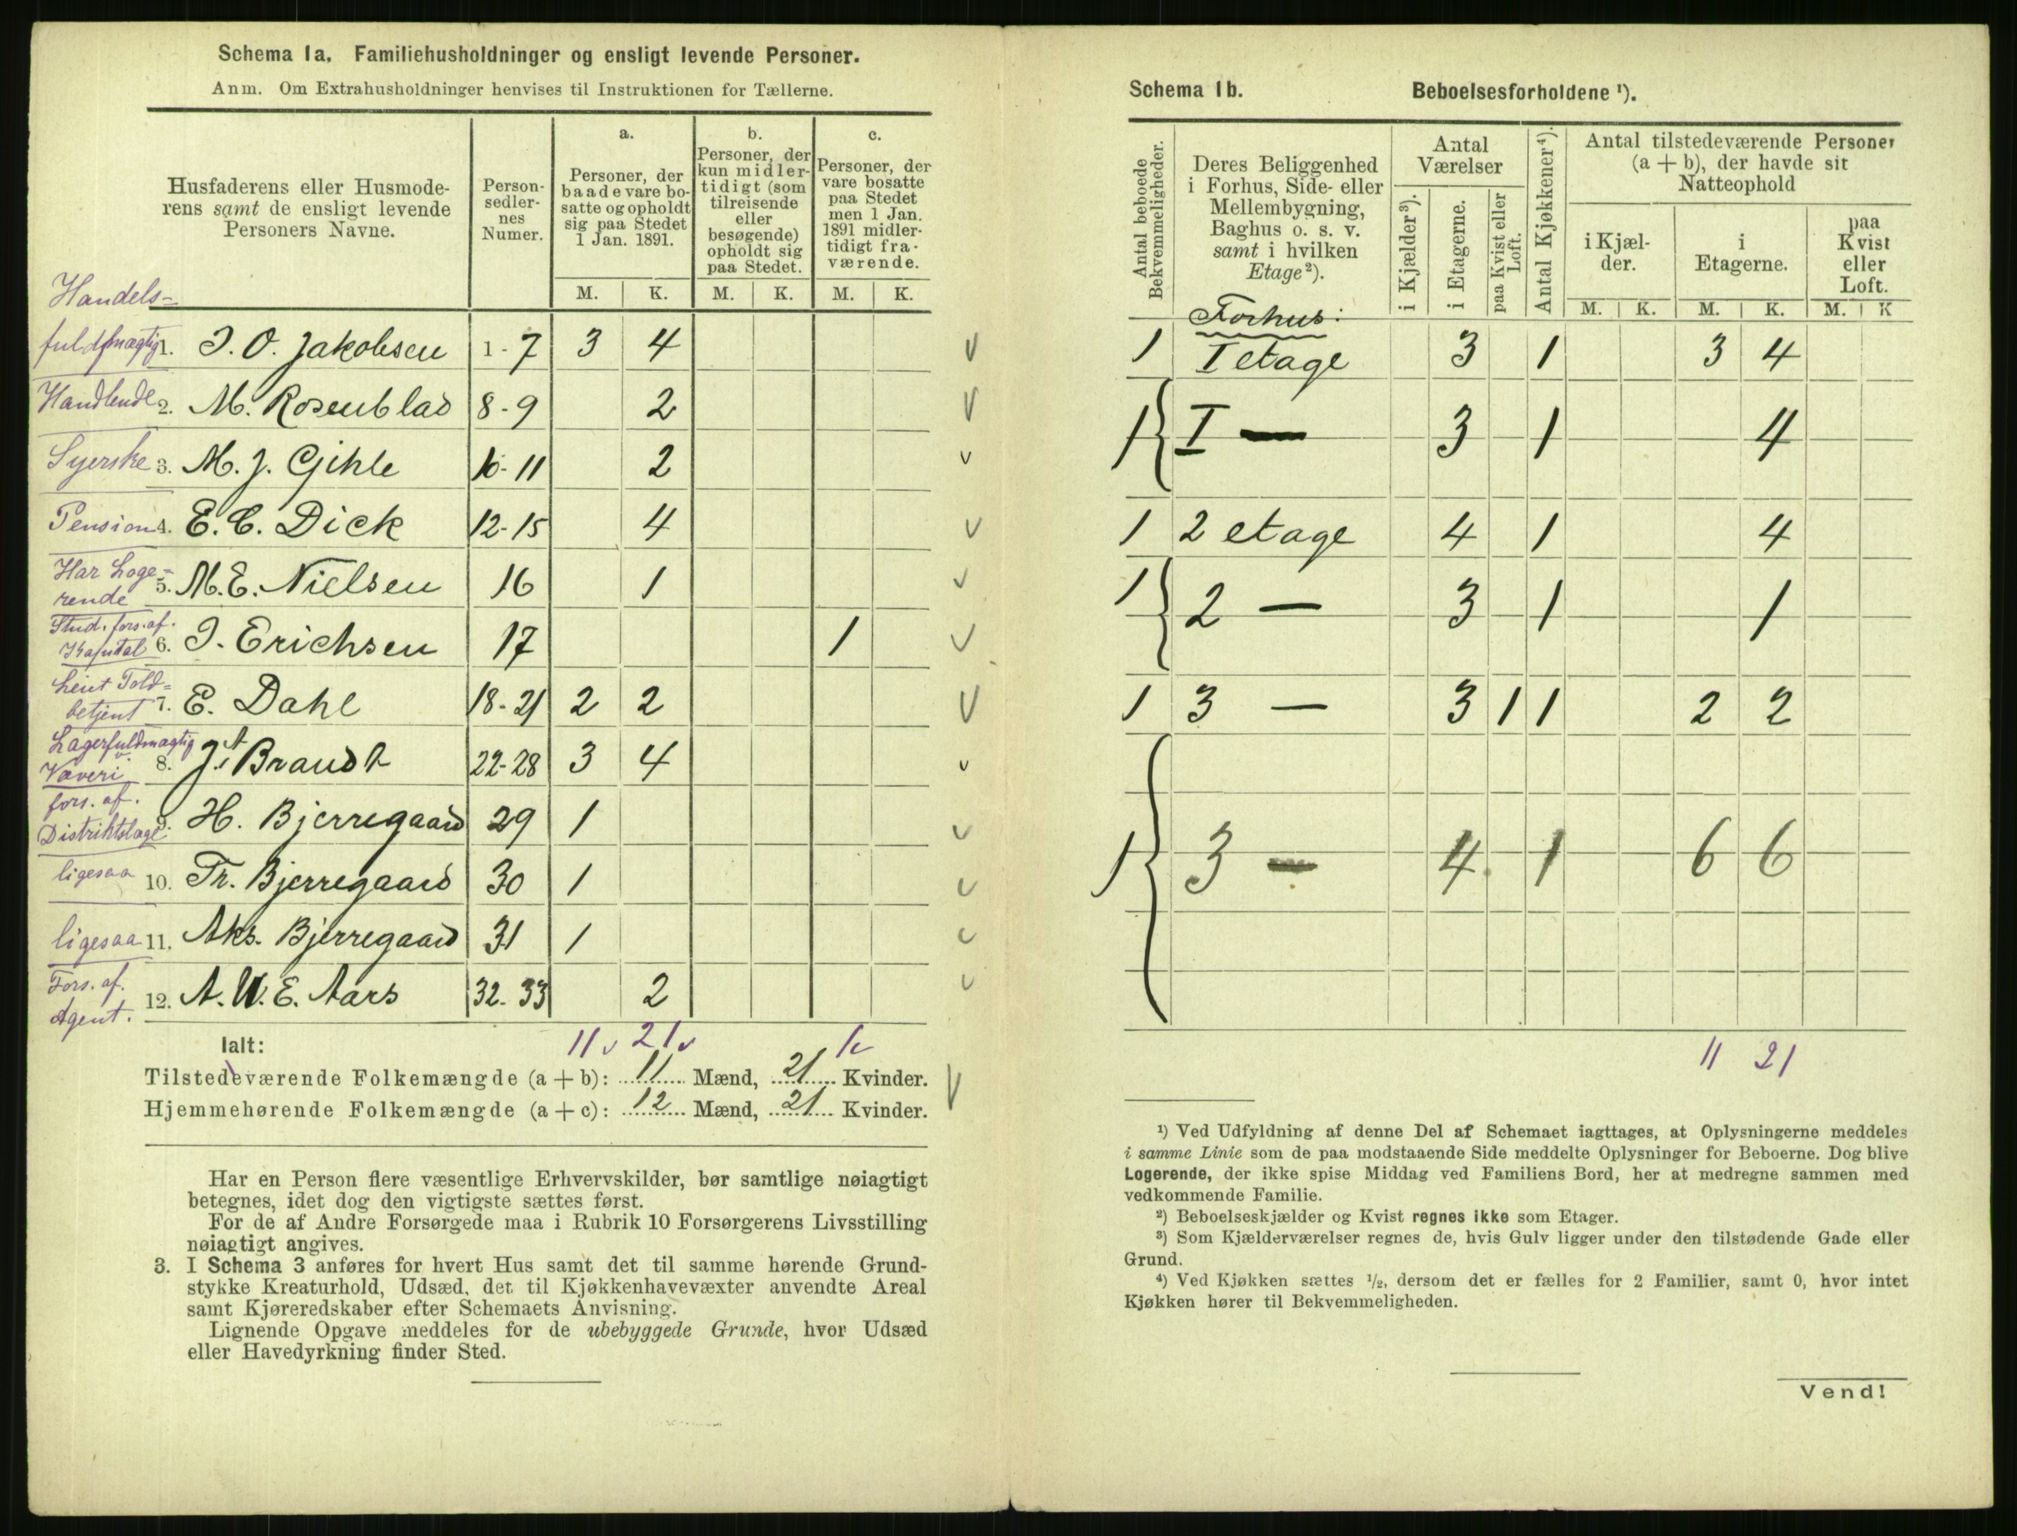 Schema 1a. Familiehusholdninger og ensligt levende Personer.
Anm. Om Extrahusholdninger henvises til Instruktionen for Tællerne.
Husfaderens eller Husmode-
rens samt de ensligt levende
Personers Navne.
Person-
sedler-
nes
Numer.
a.
Personer, der
baade vare bo-
satte og opholdt
sig paa Stedet
1 Jan. 1891.
b.
Personer, der
kun midler-
tidigt (som
tilreisende
eller
besøgende)
opholdt sig
paa Stedet.
c.
Personer, der
vare bosatte
paa Stedet
men 1 Jan.
1891 midler-
tidigt fra-
værende.
M. K. M. K. M. K.
Handels-
fuldmægtig 1. J. O. Jakobsen 1-7 3 4
Handlende 2. M. Rosenblad 8-9 2
Syerske 3. M. J. Gihle 10-11 2
Pension 4. E. C. Dick 12-15 4
Har Loge-
rende 5. M. E. Nielsen 16 1
Stud. fors. af.
Kapital 6. J. Erichsen 17 1
Leiut Told-
betjent 7. E. Dahl 18-21 2 2
Lagerfuldmægtig
Væveri 8. J. A. Brandt 22-28 3 4
fors. af.
Distriktslæge 9. H. Bjerregaard 29 1
ligesaa 10. Fr. Bjerregaard 30 1
ligesaa 11. Aks. Bjerregaard 31 1
Fors. af.
Agent. 12. A. W. E. Aars 32-33 2
Ialt: 11 21 1
Tilstedeværende Folkemængde (a + b): 11 Mænd, 21 Kvinder.
Hjemmehørende Folkemængde (a + c): 12 Mænd, 21 Kvinder.
Har en Person flere væsentlige Erhvervskilder, bør samtlige nøiagtigt
betegnes, idet dog den vigtigste sættes først.
For de af Andre Forsørgede maa i Rubrik 10 Forsørgerens Livsstilling
nøiagtigt angives.
3. I Schema 3 anføres for hvert Hus samt det til samme hørende Grund-
stykke Kreaturhold, Udsæd, det til Kjøkkenhavevæxter anvendte Areal
samt Kjøreredskaber efter Schemaets Anvisning.
Lignende Opgave meddeles for de ubebyggede Grunde, hvor Udsæd
eller Havedyrkning finder Sted.
Schema 1b. Beboelsesforholdene ¹).
Antal beboede
Bekvemmeligheder.
Deres Beliggenhed
i Forhus, Side- eller
Mellembygning,
Baghus o. s. v.
samt i hvilken
Etage²).
Antal
Værelser
i Kjælder³).
i Etagerne.
paa Kvist eller
Loft.
Antal Kjøkkener⁴).
Antal tilstedeværende Personer
(a + b), der havde sit
Natteophold
i Kjæl-
der.
i
Etagerne.
paa
Kvist
eller
Loft.
M. K. M. K. M. K
Forhus:
1 I etage 3 1 3 4
1 I — 3 1 4
1 2 etage 4 1 4
1 2 — 3 1 1
1 3 — 3 1 1 2 2
1 3 — 4 1 6 6
11 21
¹) Ved Udfyldning af denne Del af Schemaet iagttages, at Oplysningerne meddeles
i samme Linie som de paa modstaaende Side meddelte Oplysninger for Beboerne. Dog blive
Logerende, der ikke spise Middag ved Familiens Bord, her at medregne sammen med
vedkommende Familie.
²) Beboelseskjælder og Kvist regnes ikke som Etager.
³) Som Kjælderværelser regnes de, hvis Gulv ligger under den tilstødende Gade eller
Grund.
⁴) Ved Kjøkken sættes ½, dersom det er fælles for 2 Familier, samt 0, hvor intet
Kjøkken hører til Bekvemmeligheden.
Vend!